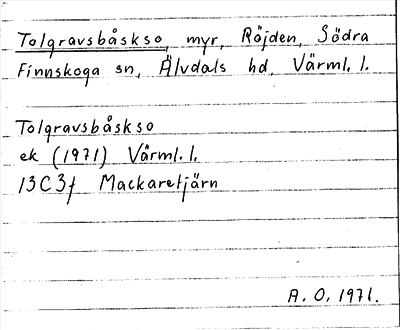 Tolgravsbåskso, myr, Röjden, Södra
Finnskoga sn, Älvdals hd, Värml. l.
Tolgravsbåskso
ek (1971) Värml. l.
13C3f Mackaretjärn
A. O. 1971.